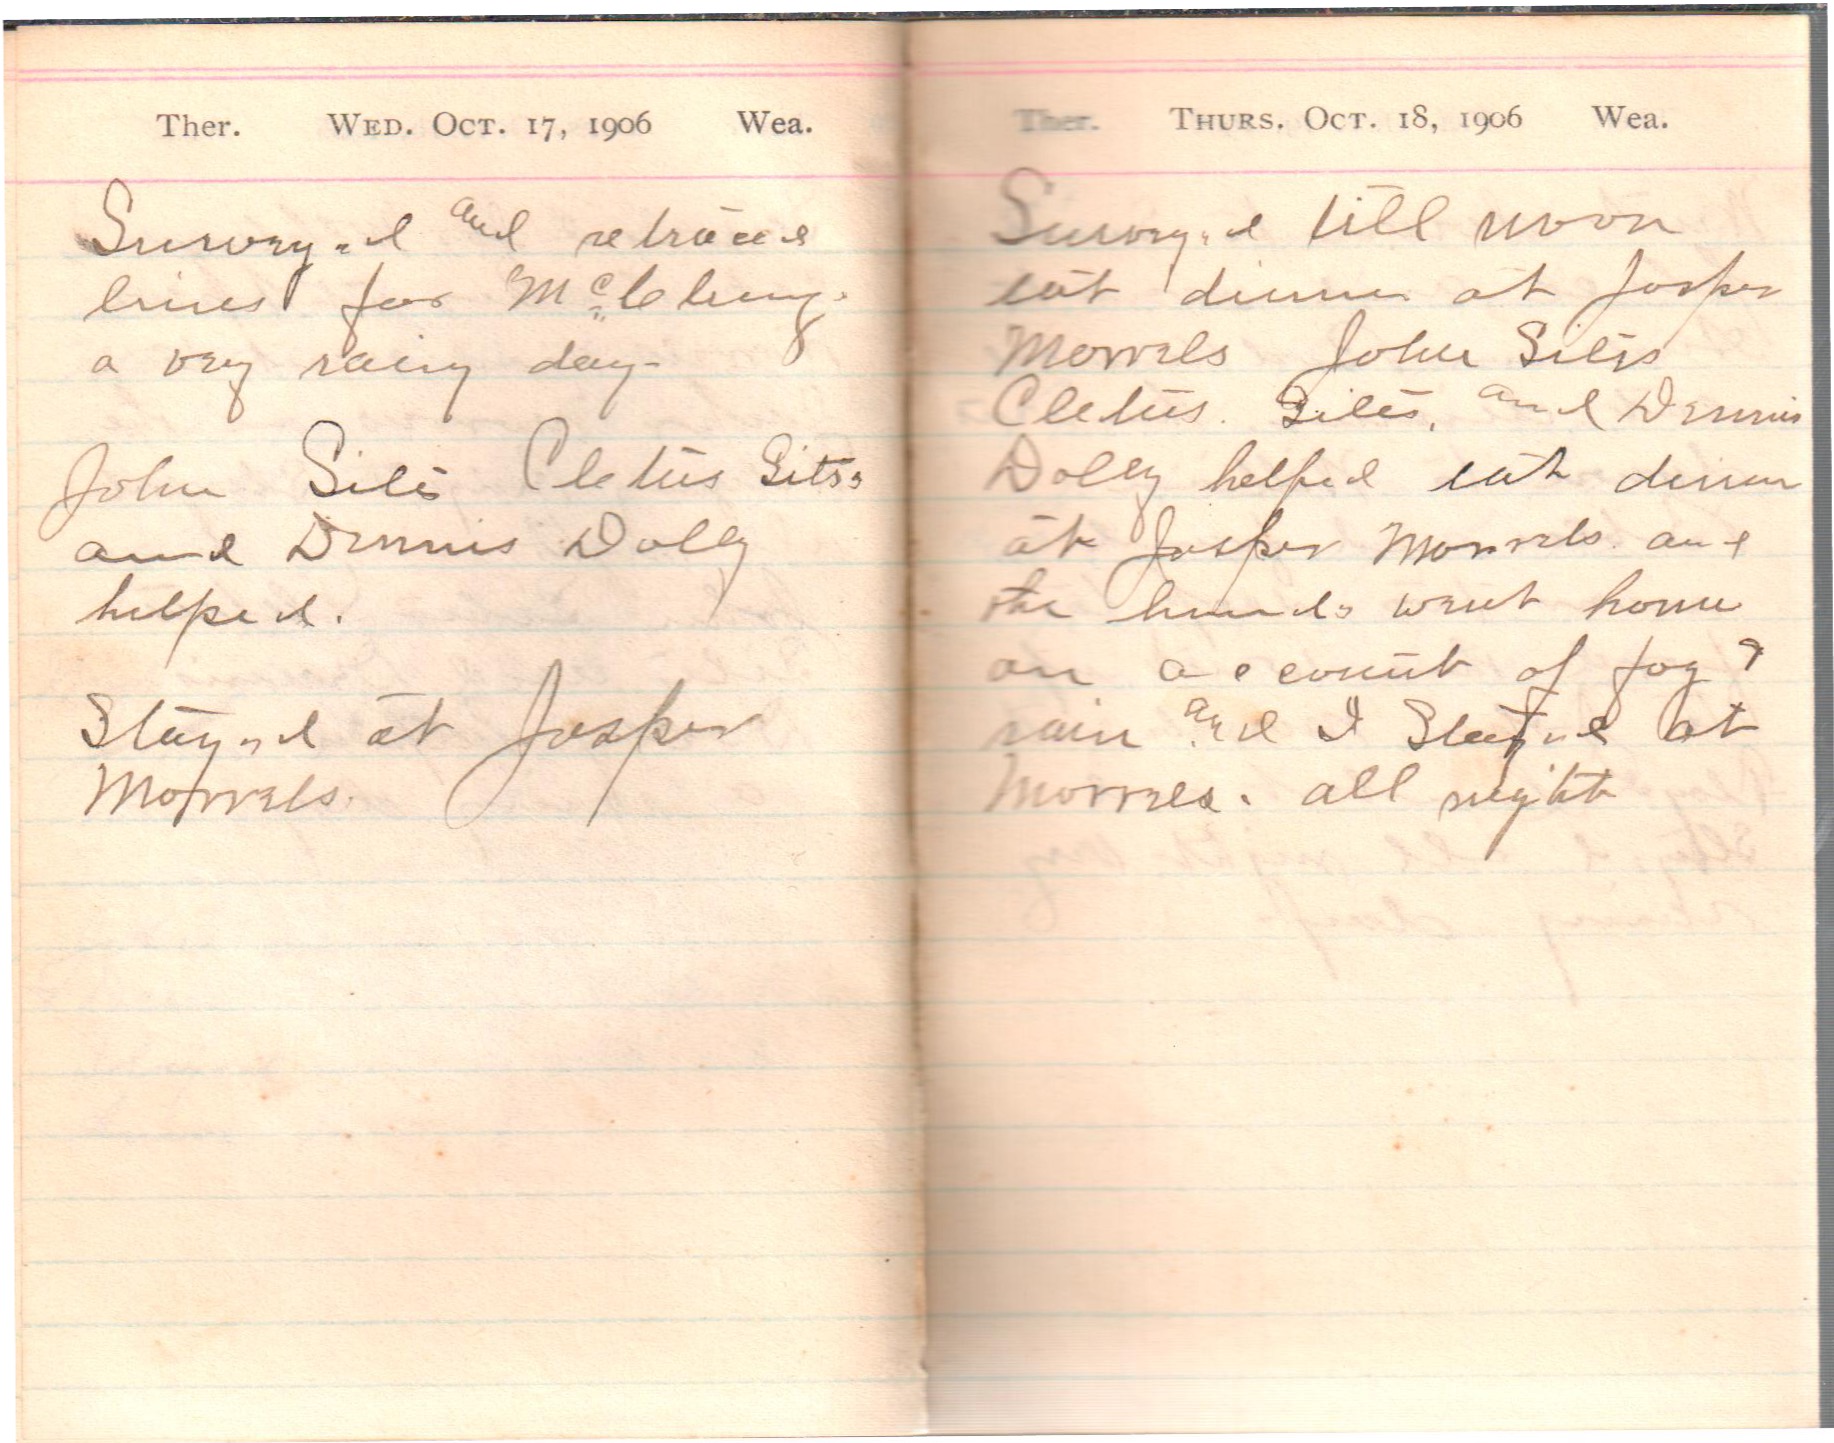 Ther. WED. OCT. 17, 1906 Wea.
Survey.d and retraced
lines for McClung.
a very rainy day.
John Sites Cletus Sites
and Dennis Dolly
helped.
Stay.d at Jasper
Morrels.
Ther. THURS. OCT. 18, 1906 Wea.
Survey.d till noon
eat dinner at Jasper
Morrels John Sites
Cletus. Sites, and Dennis
Dolly helped eat dinner
at Jasper Morrels. and
the hands went home
on account of fog &
rain and I Stayed at
Morrels. all night